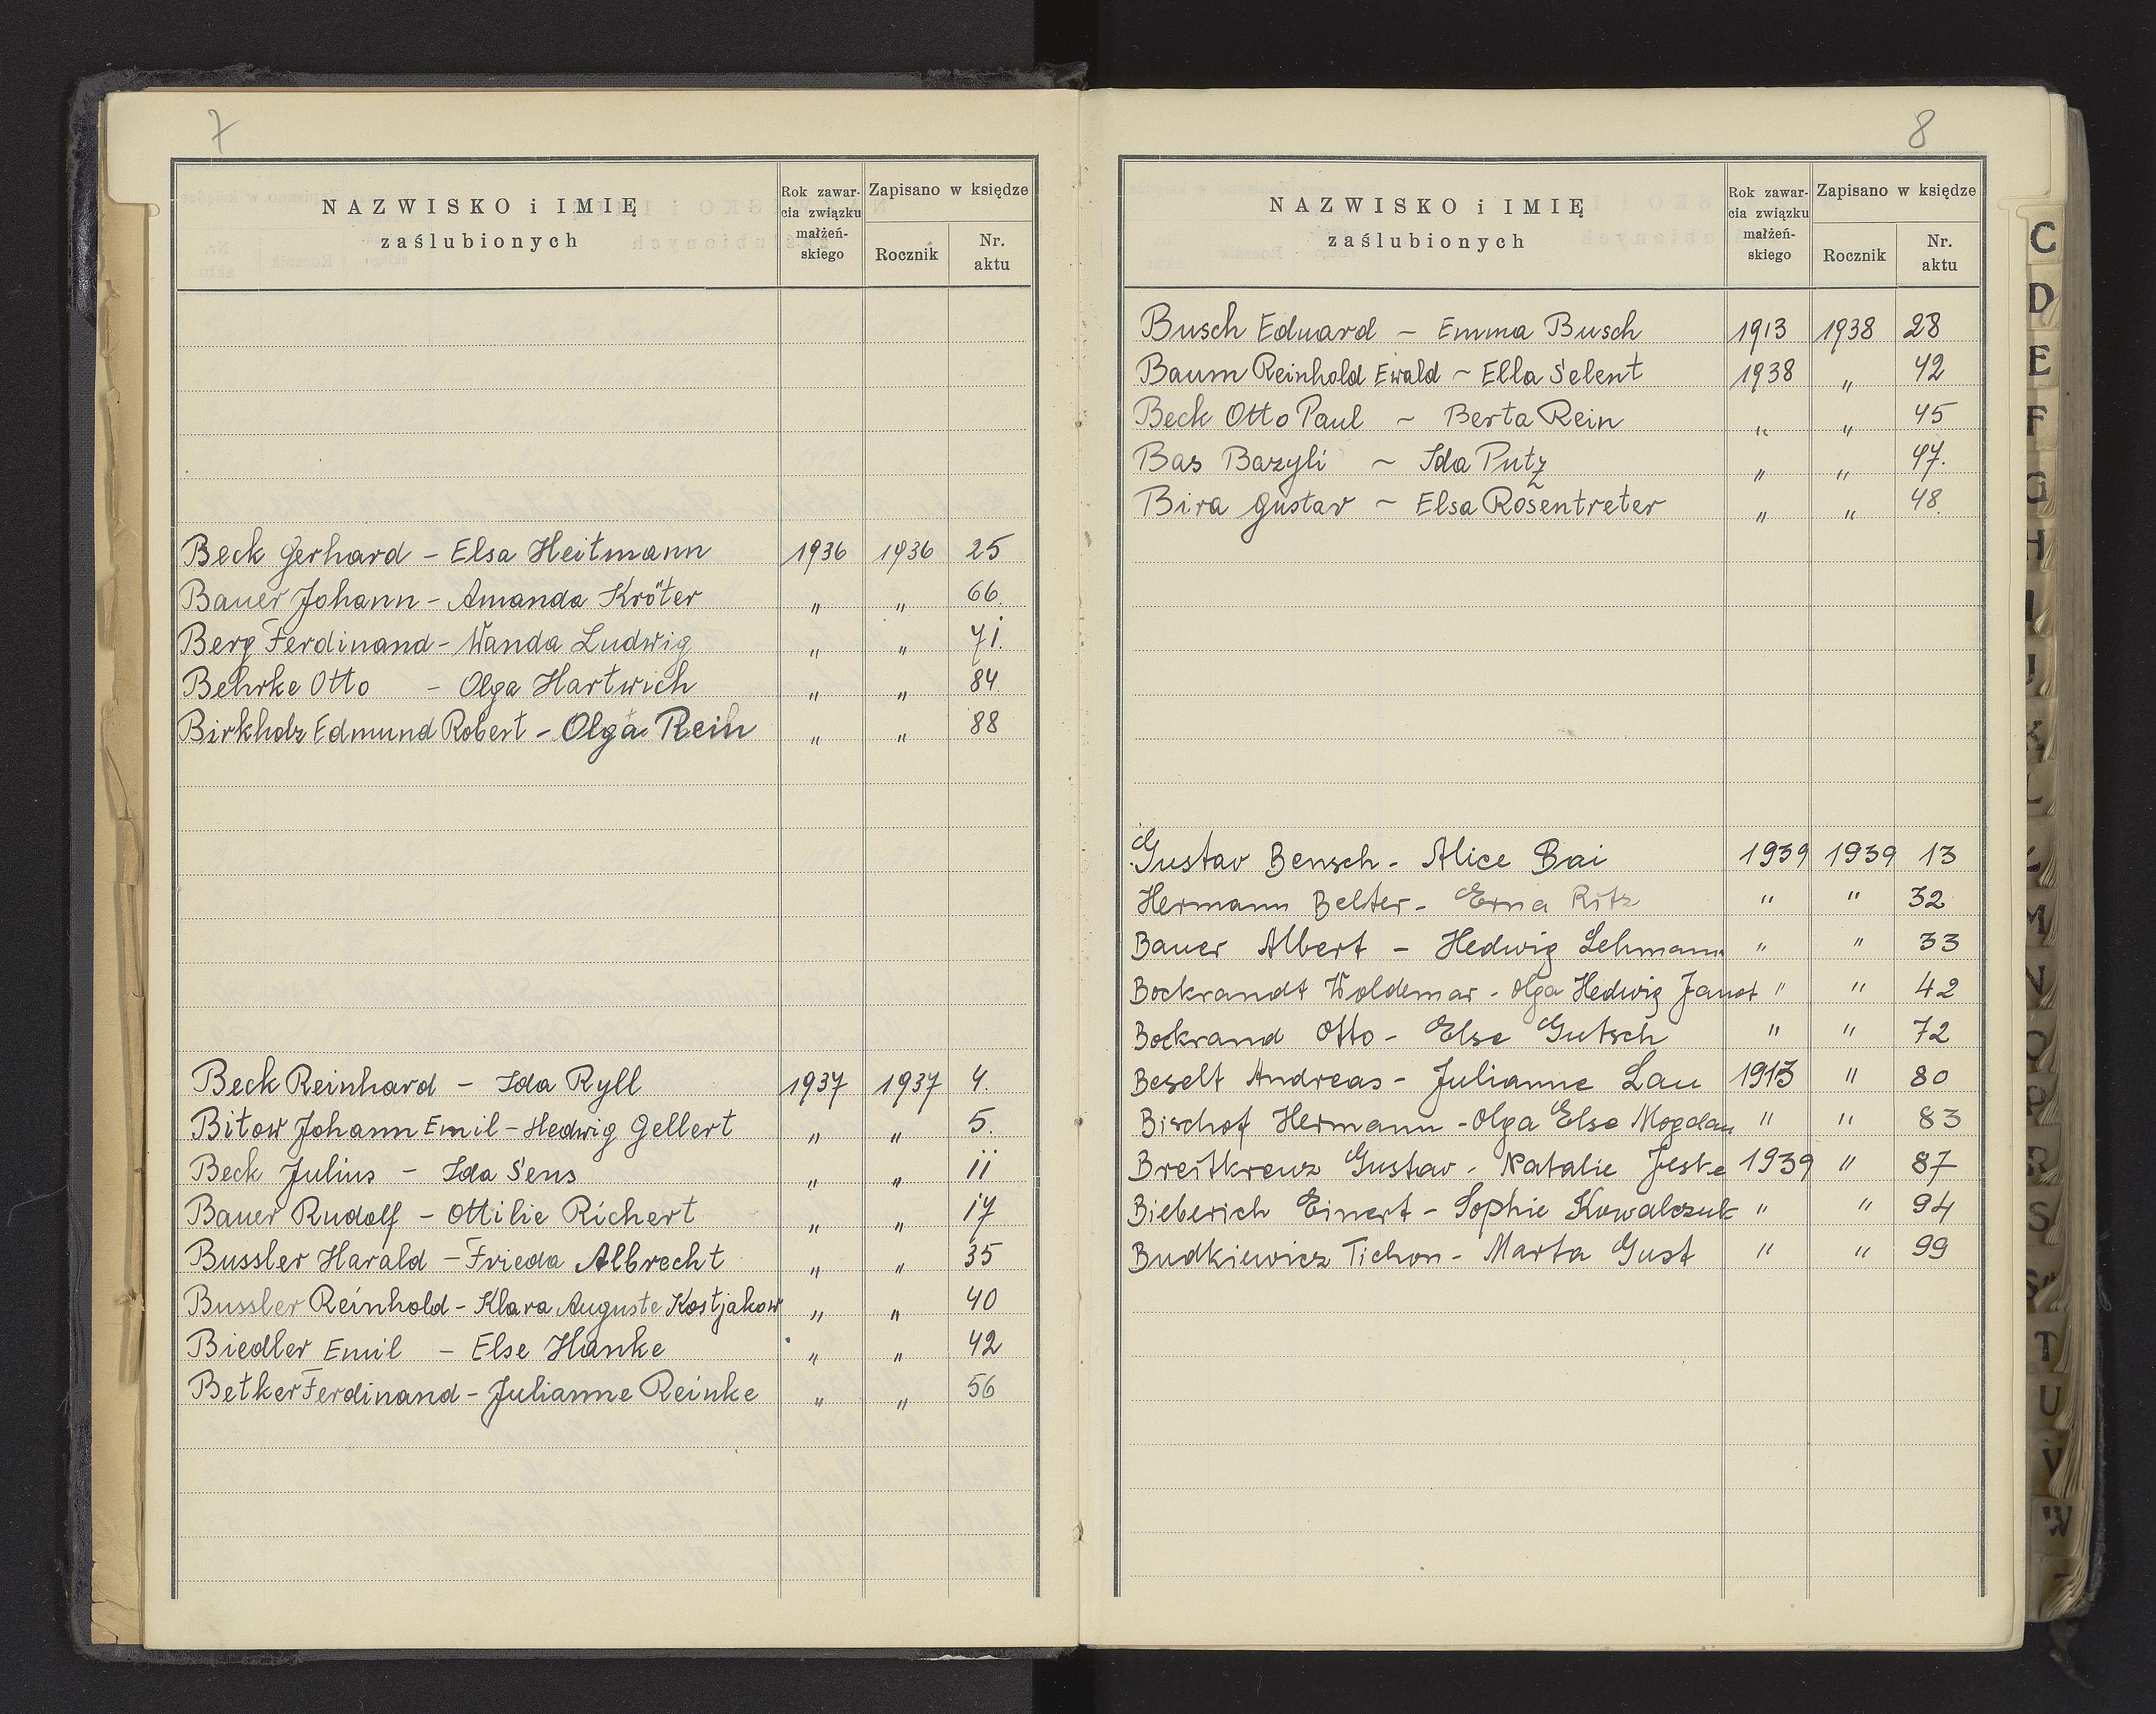 7
NAZWISKO i IMIĘ
zaślubionych
Rok zawar-
cia związku
małżeń-
skiego
Zapisano w księdze
Rocznik
Nr.
aktu
Beck Gerhard – Elsa Heitmann 1936 1936 25
Bauer Johann – Amanda Kröter " " 66.
Berg Ferdinand – Wanda Ludwig " " 71.
Behrke Otto – Olga Hartwich " " 84.
Birkholz Edmund Robert – Olga Rein " " 88
Beck Reinhard – Ida Ryll 1937 1937 4.
Bitow Johann Emil – Hedwig Gellert " " 5.
Beck Julius – Ida Sens " " 11
Bauer Rudolf – Ottilie Richert " " 17
Bussler Harald – Frieda Albrecht " " 35
Bussler Reinhold – Klara Auguste Kostjakow " " 40
Biedler Emil – Else Hanke " " 42
Betker Ferdinand – Julianne Reinke " " 56
8
NAZWISKO i IMIĘ
zaślubionych
Rok zawar-
cia związku
małżeń-
skiego
Zapisano w księdze
Rocznik
Nr.
aktu
Busch Eduard ~ Emma Busch 1913 1938 28
Baum Reinhold Ewald ~ Ella Selent 1938 " 42
Beck Otto Paul ~ Berta Rein " " 45
Bas Bazyli ~ Ida Putz " " 47.
Bira Gustav ~ Elsa Rosentreter " " 48.
Gustav Bensch - Alice Bai 1939 1939 13
Hermann Belter - Erna Ritz " " 32
Bauer Albert – Hedwig Lehmann " " 33
Bockrandt Woldemar - Olga Hedwig Janot " " 42
Bockrand Otto - Else Gutsch " " 72
Beselt Andreas - Julianne Lau 1913 " 80
Bischof Hermann - Olga Else Mogdau " " 83
Breitkreuz Gustav - Natalie Jeske 1939 " 87
Bieberich Einert - Sophie Kowalczuk " " 94
Budkiewicz Tichon - Marta Gust " " 99
C
D
E
F
G
H
I
J
K
L
Ł
M
N
O
P
R
S
Ś
T
U
V
W